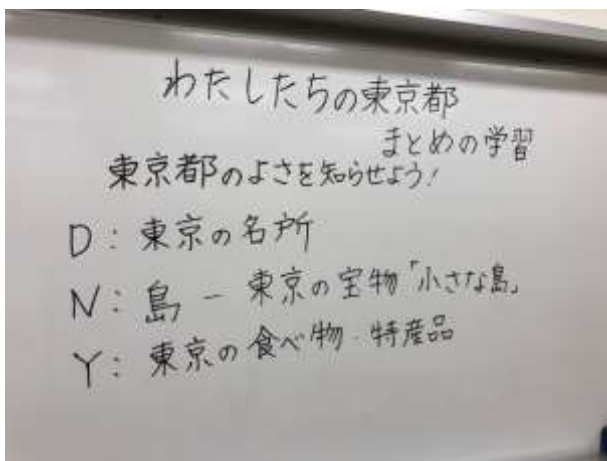 わたしたちの東京都
まとめの学習
東京都のよさを知らせよう!
D:東京の名所
N:島 - 東京の宝物「小さな島」
Y:東京の食べ物・特産品